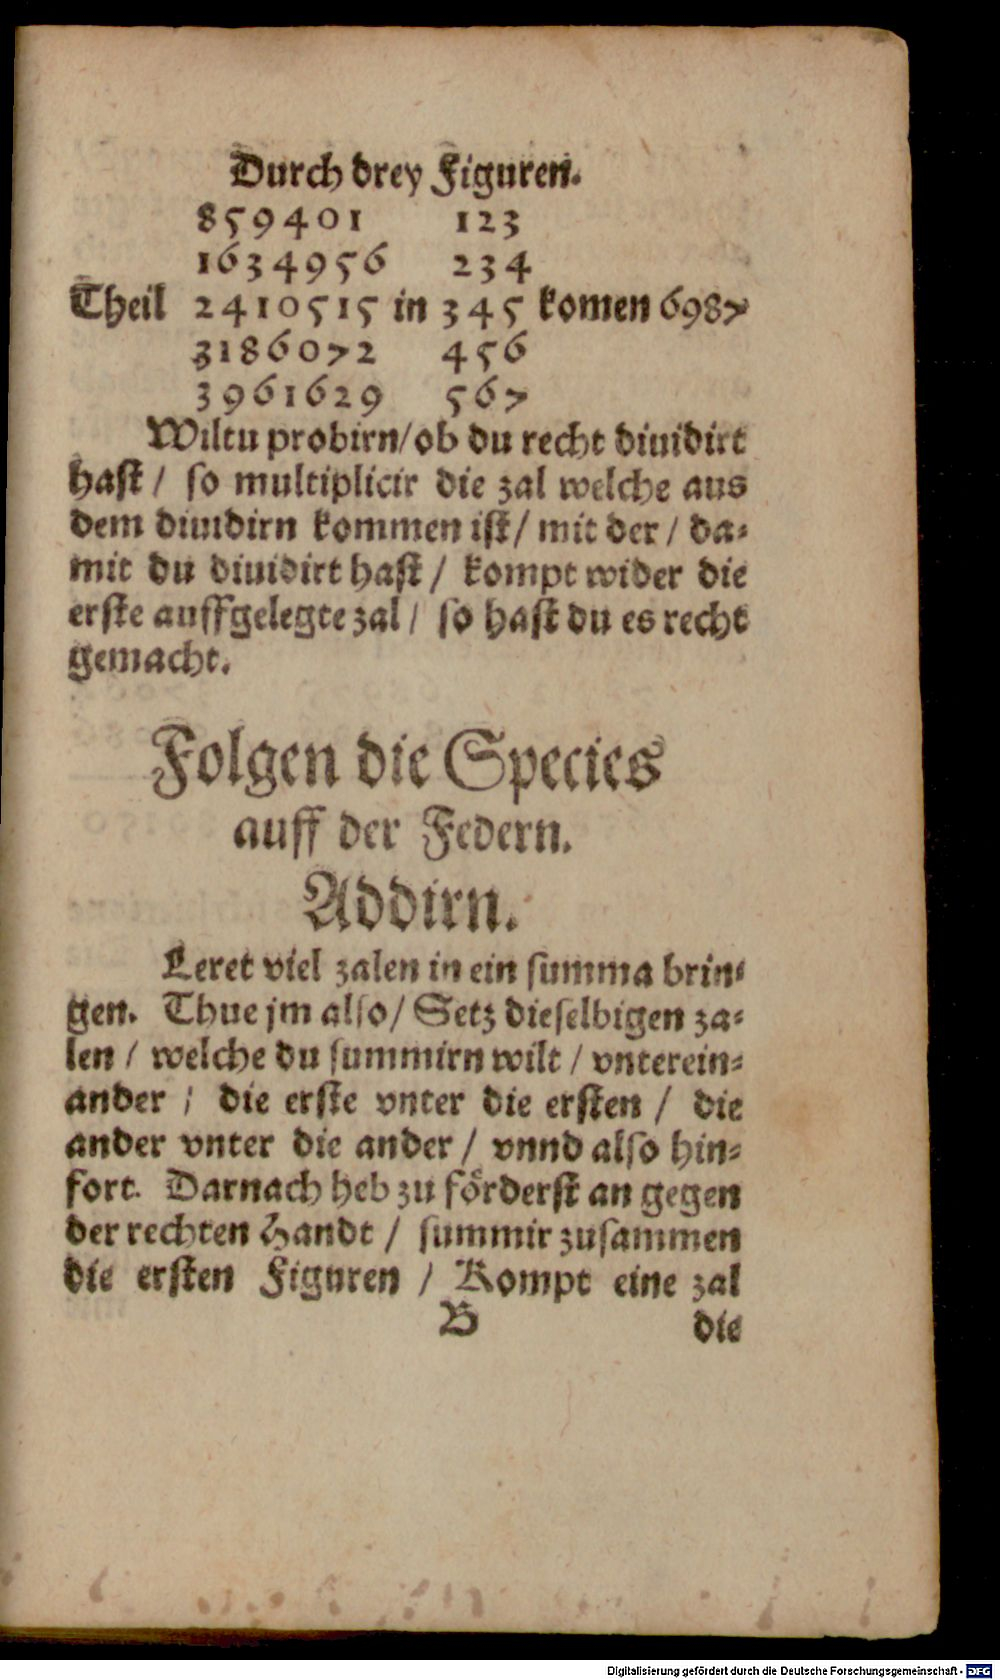 Durch drey Figuren.
859401 123
1634956 234
Theil 2410515 in 345 komen 6987
3186072 456
3961629 567
Wiltu probirn/ob du recht diuidirt
hast / so multiplicir die zal welche aus
dem diuidirn kommen ist / mit der / da-
mit du diuidirt hast / kompt wider die
erste auffgelegte zal / so hast du es recht
gemacht.
Folgen die Species
auff der Federn.
Addirn.
Leret viel zalen in ein summa brin-
gen. Thue jm also / Setz dieselbigen za-
len / welche du summirn wilt / vnterein-
ander / die erste vnter die ersten / die
ander vnter die ander / vnnd also hin-
fort. Darnach heb zu förderst an gegen
der rechten Handt / summir zusammen
die ersten Figuren / Kompt eine zal
B die
Digitalisierung gefördert durch die Deutsche Forschungsgemeinschaft - DFG